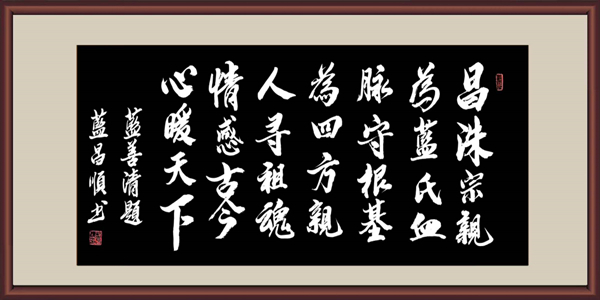 昌洙宗親
為藍氏血
脉守根基
為四方親
人寻祖魂
情感古今
心暖天下
藍善清題
藍昌順书